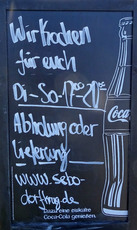 Wir kochen
für euch
Di-So-17⁰⁰-20⁰⁰
Abholung oder
Lieferung
www.sebo-
dorfkrug.de
Dazu eine eiskalte
Coca-Cola genießen.
Coca